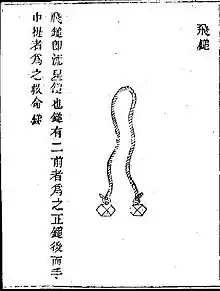 飛鎚
飛鎚即流星鎚也鎚有二前者為之正鎚後面手
中提者為之救命鎚